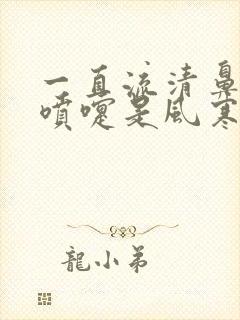 一直流清鼻
噴嚏是風寒
龍小弟